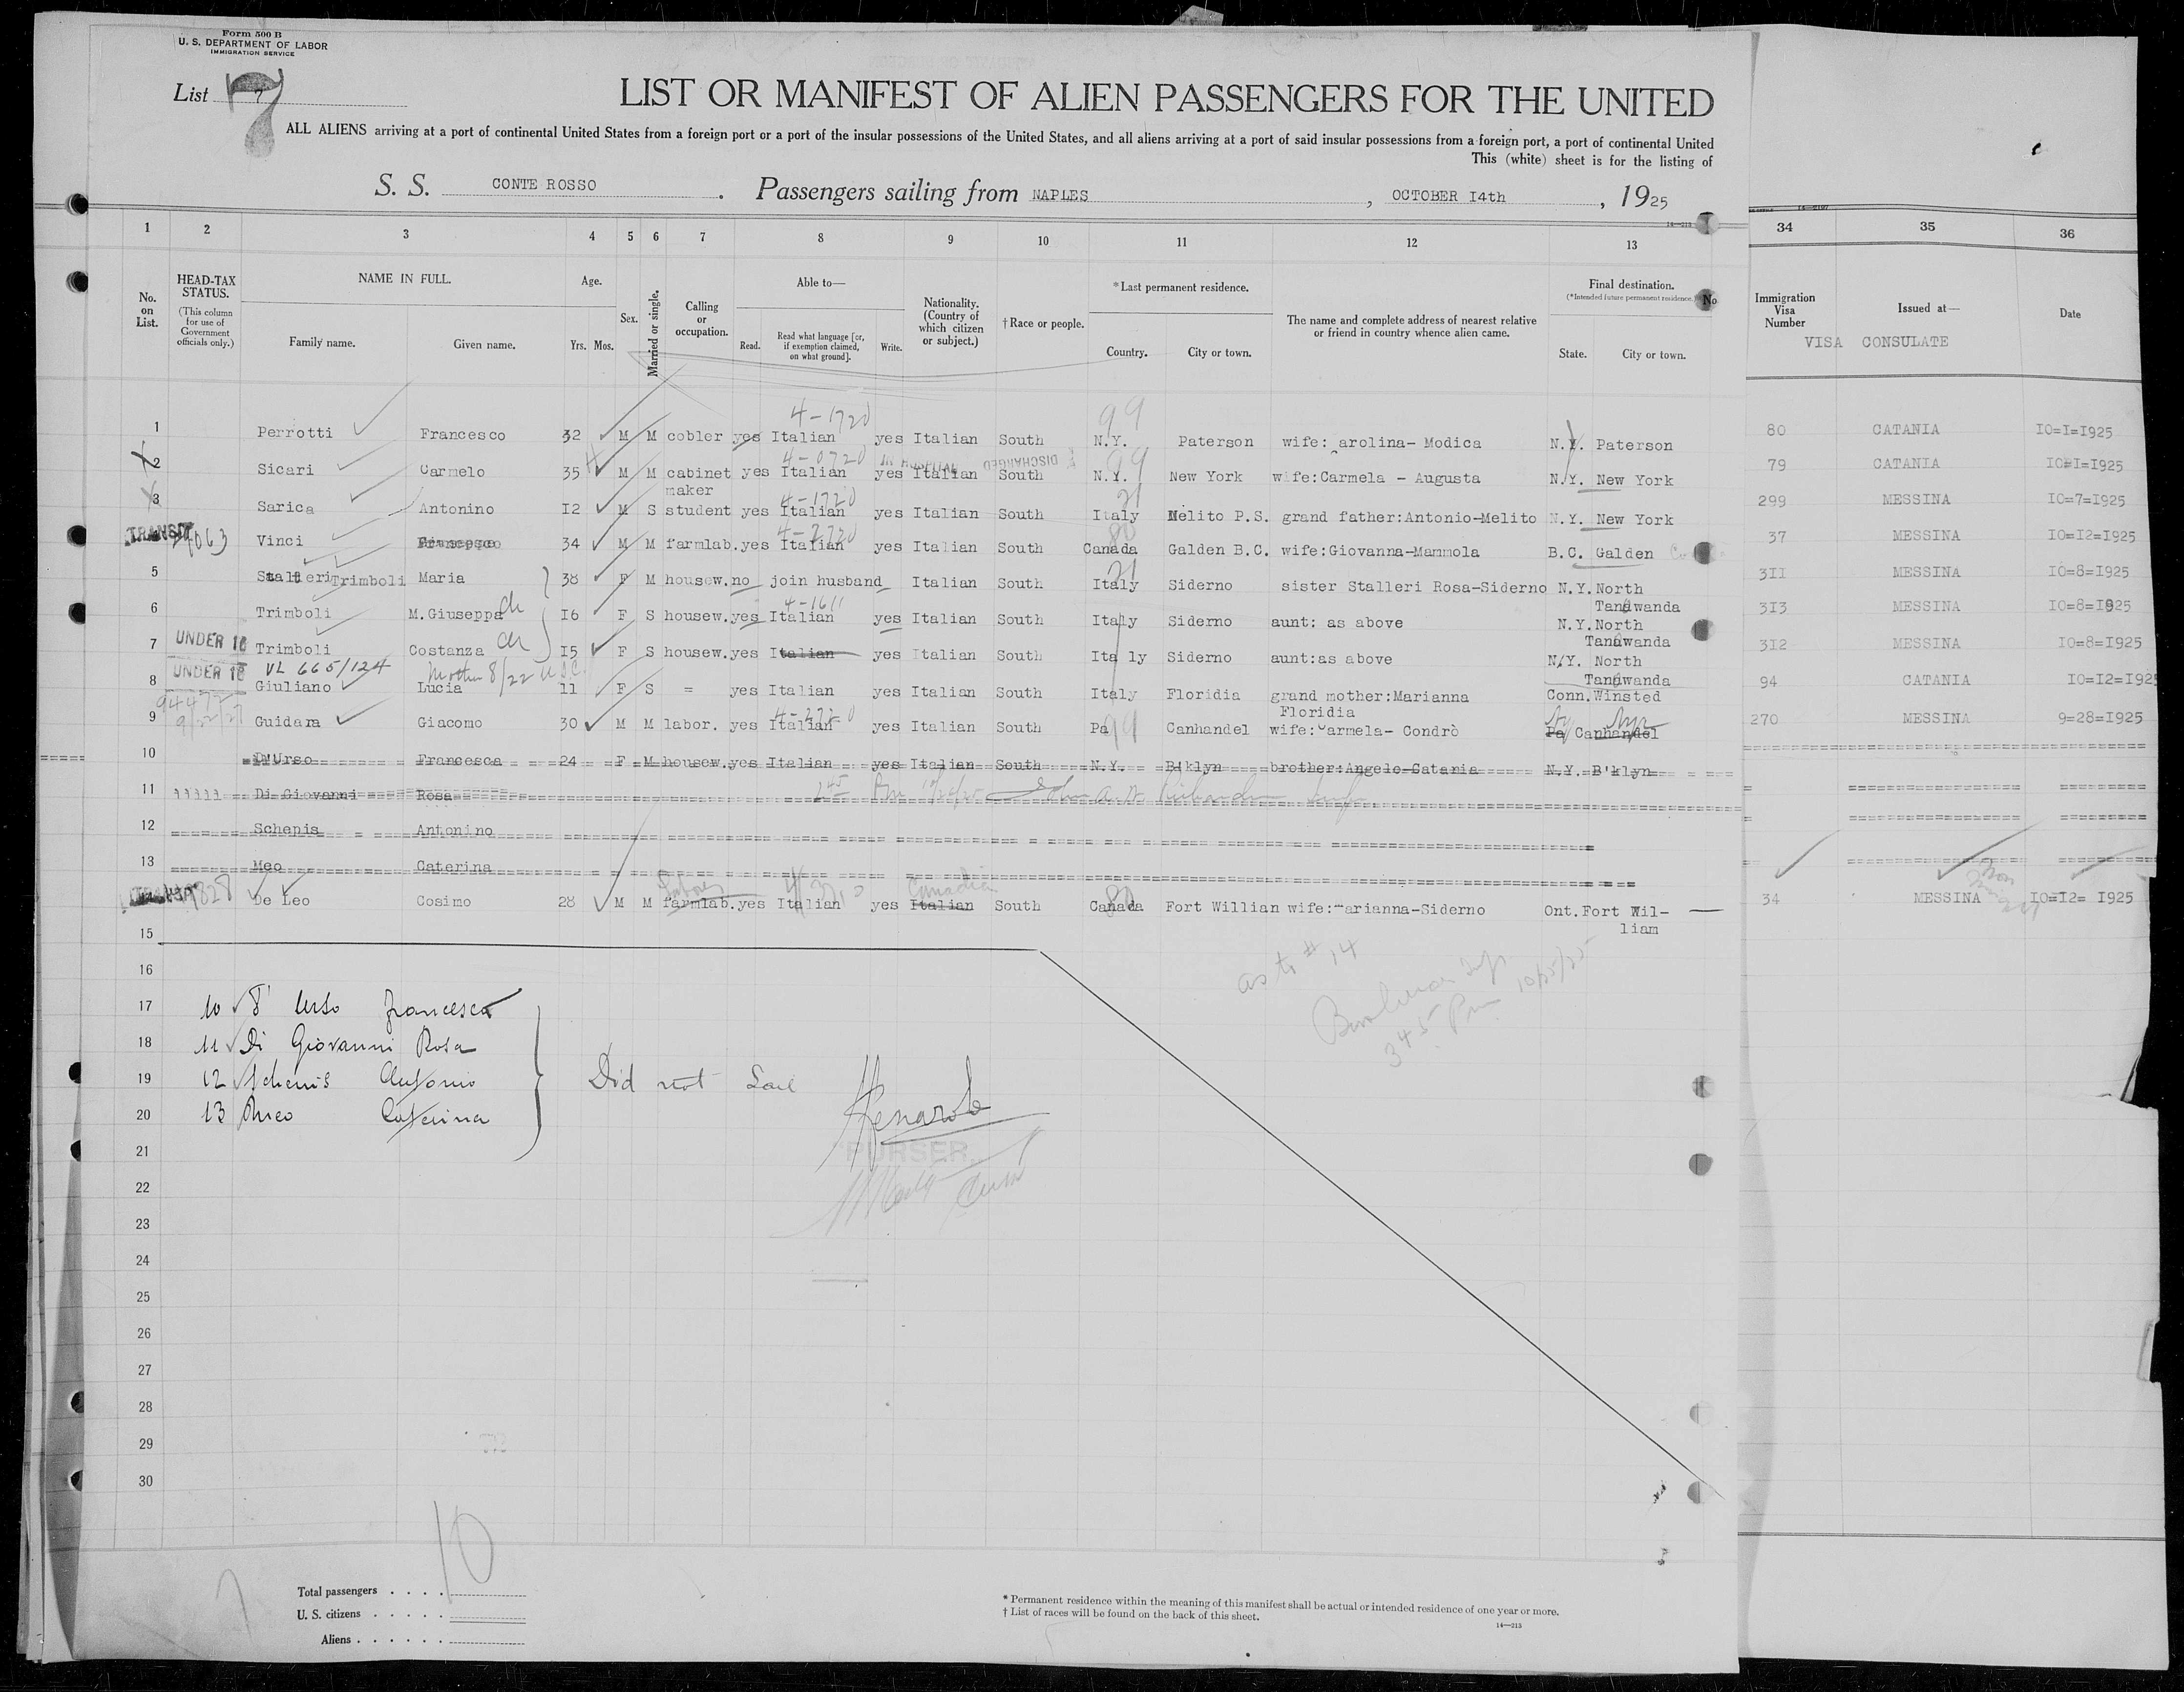 Form 500 B
U. S. DEPARTMENT OF LABOR
IMMIGRATION SERVICE
List 7
7
LIST OR MANIFEST OF ALIEN PASSENGERS FOR THE UNITED
ALL ALIENS arriving at a port of continental United States from a foreign port or a port of the insular possessions of the United States, and all aliens arriving at a port of said insular possessions from a foreign port, a port of continental United
This (white) sheet is for the listing of
S. S. CONTE ROSSO . Passengers sailing from NAPLES , OCTOBER I4th , 1925
1 2 3 4 5 6 7 8 9 10 11 12 13 34 35 36
No. on List.
HEAD-TAX STATUS.
(This column for use of Government officials only.)
NAME IN FULL.
Family name. Given name.
Age.
Yrs. Mos.
Sex.
Married or single.
Calling or occupation.
Able to—
Read. Read what language [or, if exemption claimed, on what ground]. Write.
Nationality. (Country of which citizen or subject.)
† Race or people.
* Last permanent residence.
Country. City or town.
The name and complete address of nearest relative or friend in country whence alien came.
Final destination.
(* Intended future permanent residence.)
State. City or town.
No
Immigration Visa Number
Issued at—
Date
VISA CONSULATE
4-1720 99
1 Perrotti Francesco 32 M M cobler yes Italian yes Italian South N.Y. Paterson wife: arolina- Modica N.Y. Paterson 80 CATANIA IO=I=I925
4-0720 IN HOSPITAL DISCHARGED 99
2 Sicari Carmelo 35 M M cabinet yes Italian yes Italian South N.Y. New York wife:Carmela - Augusta N.Y. New York 79 CATANIA IO=I=I925
maker 4-1720 21
3 Sarica Antonino I2 M S student yes Italian yes Italian South Italy Melito P.S. grand father:Antonio-Melito N.Y. New York 299 MESSINA IO=7=I925
4-2720 80
TRANSIT Vinci 34 M M farmlab.yes Italian yes Italian South Canada Galden B.C. wife:Giovanna-Mammola B.C. Galden 37 MESSINA IO=I2=I925
21
5 Stalteri Trimboli Maria 38 F M housew.no join husband Italian South Italy Siderno sister Stalleri Rosa-Siderno N.Y.North 3II MESSINA IO=8=I925
4-1611 Tanawanda
6 Trimboli M.Giuseppa ch I6 F S housew.yes Italian yes Italian South Italy Siderno aunt: as above N.Y.North 3I3 MESSINA IO=8=I925
Tanawanda
7 UNDER 16 Trimboli Costanza ch I5 F S housew.yes Italian yes Italian South Ita ly Siderno aunt:as above N.Y. North 3I2 MESSINA IO=8=I925
UNDER 16 VL 665/124 Mother 8/22 U.S.C. Tanawanda
8 Giuliano Lucia 11 F S = yes Italian yes Italian South Italy Floridia grand mother:Marianna Conn.Winsted 94 CATANIA IO=I2=I925
Floridia
4-2720 99
9 Guidara Giacomo 30 M M labor. yes Italian yes Italian South Pa Canhandel wife: armela- Condrò Pa Canhandel 270 MESSINA 9=28=I925
10 D'Urso Francesca 24 F M housew.yes Italian yes Italian South N.Y. B'klyn brother:Angelo-Catania N.Y. B'klyn
11 Di Giovanni Rosa
12 Schepis Antonino
13 Meo Caterina
Canadian
TRANSIT De Leo Cosimo 28 M M farmlab.yes Italian yes Italian South Canada Fort Willian wife: arianna-Siderno Ont.Fort Wil- 34 MESSINA IO=I2= I925
80 liam
15
16
as to # 14
17 10 D' Urso Francesca
18 11 Di Giovanni Rosa
345 Pm 10/25/25
19 12 Schenis Antonio Did not Sail
20 13 Meo Caterina
21 PURSER
22
23
24
25
26
27
28
29
30
10
Total passengers . . . .
U. S. citizens . . . . .
Aliens . . . . . .
* Permanent residence within the meaning of this manifest shall be actual or intended residence of one year or more.
† List of races will be found on the back of this sheet.
14—215